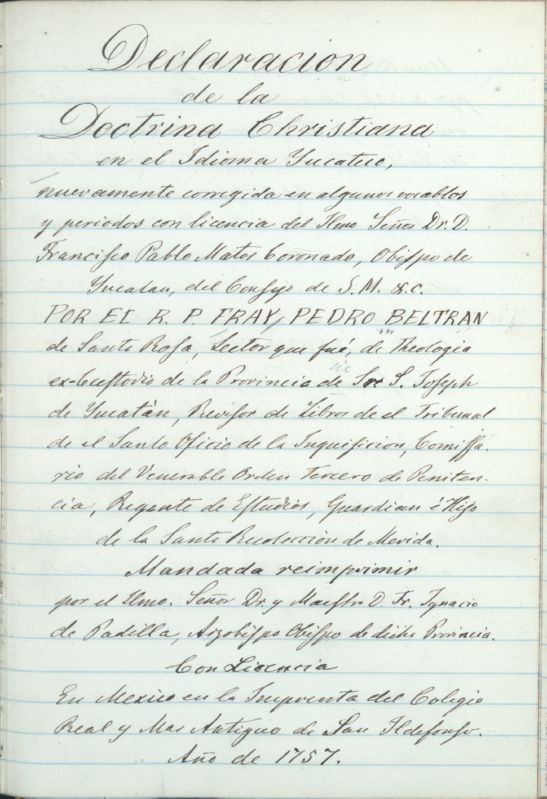 Declaracion
de la
Doctrina Christiana
en el Idioma Yucateco,
nuevamente corregida en algunos vocablos
y periodos con licencia del Illmo Señor Dr. D.
Francisco Pablo Matos Coronado, Obispo de
Yucatan, del Consejo de S. M. &c.
POR EL R. P. FRAY PEDRO BELTRAN
de Santa Rosa, Lector que fué, de Theologia
ex-Custodio de la Provincia de Sr. S. Joseph
de Yucatàn, Revisor de Libros de el Tribunal
de el Santo Oficio de la Inquisicion, Comissa-
rio del Venerable Orden Tercero de Peniten-
cia, Regente de Estudios, Guardian é Hijo
de la Santa Recoleccion de Merida.
Mandada reimprimir
por el Illmo. Señor Dr. y Maestro D. Fr. Ignacio
de Padilla, Arzobispo Obispo de dicha Provincia.
Con Licencia
En Mexico en la Imprenta del Colegio
Real y Mas Antiguo de San Ildefonso.
Año de 1757.